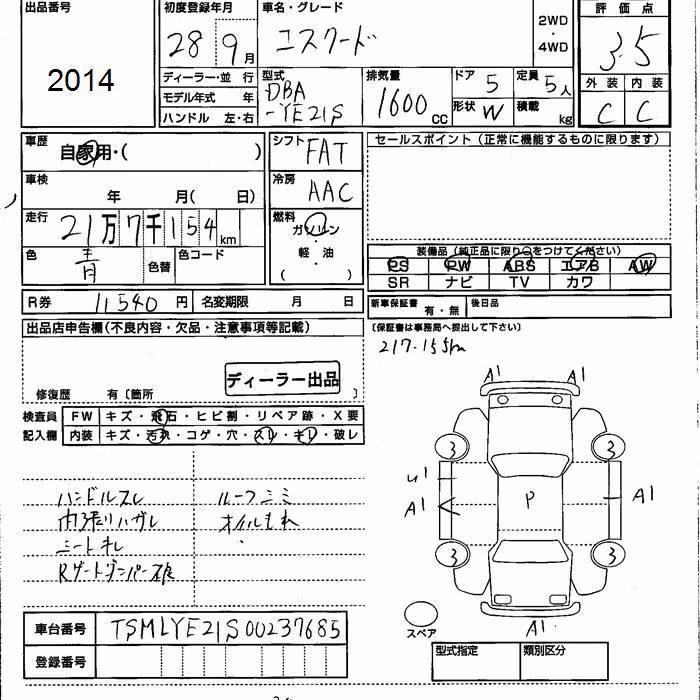 出品番号
2014
初度登録年月
28 9月
車名・グレード
エスクード
2WD
・
4WD
評価点
3.5
ディーラー・並行
モデル年式 年
ハンドル 左・右
型式
DBA
-YE21S
排気量
1600cc
ドア 5
形状 W
定員 5人
積載 kg
外装 内装
C C
車歴
自家用・( )
車検
年 月( 日)
走行
21万7千154km
色 青 色替
色コード
シフト
FAT
冷房
AAC
燃料
ガソリン
・
軽油
・
( )
セールスポイント(正常に機能するものに限ります)
装備品(純正品に限り○をつけてください)
PS PW ABS エアB AW
SR ナビ TV カワ
R券 11540円
名変期限 月 日
新車保証書 有・無
後日品
(保証書は事務局へ提出して下さい)
217.155km
出品店申告欄(不良内容・欠品・注意事項等記載)
ディーラー出品
修復歴 有〔箇所 〕
検査員
記入欄
FW キズ・飛石・ヒビ割・リペア跡・X要
内装 キズ・汚れ・コゲ・穴・スレ・キレ・破レ
ハンドルスレ
内張りハガレ
シートキレ
Rゲートダンパー不良
ルーフシミ
オイルもれ
A1 A1
3 3
U1
A1
P
A1
3 3
A1
スペア
車台番号 TSMLYE21S00237685
登録番号
型式指定
類別区分